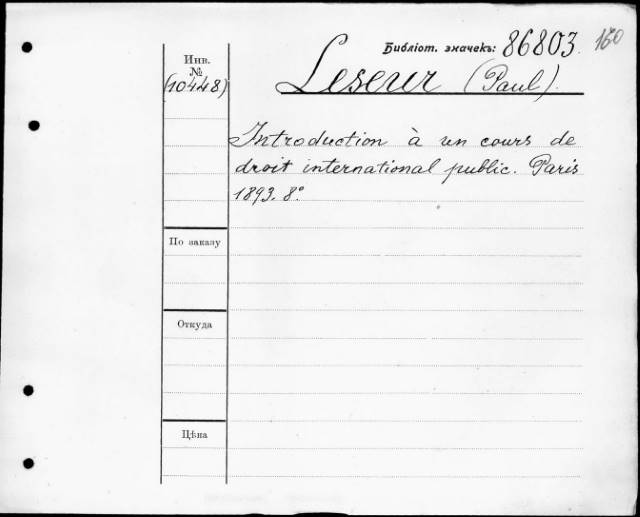 Библіот. значекъ: 86803. 160
Инв.
№
(10448)
Leseur (Paul).
Introduction à un cours de
droit international public. Paris
1893. 8°.
По заказу
Откуда
Цѣна